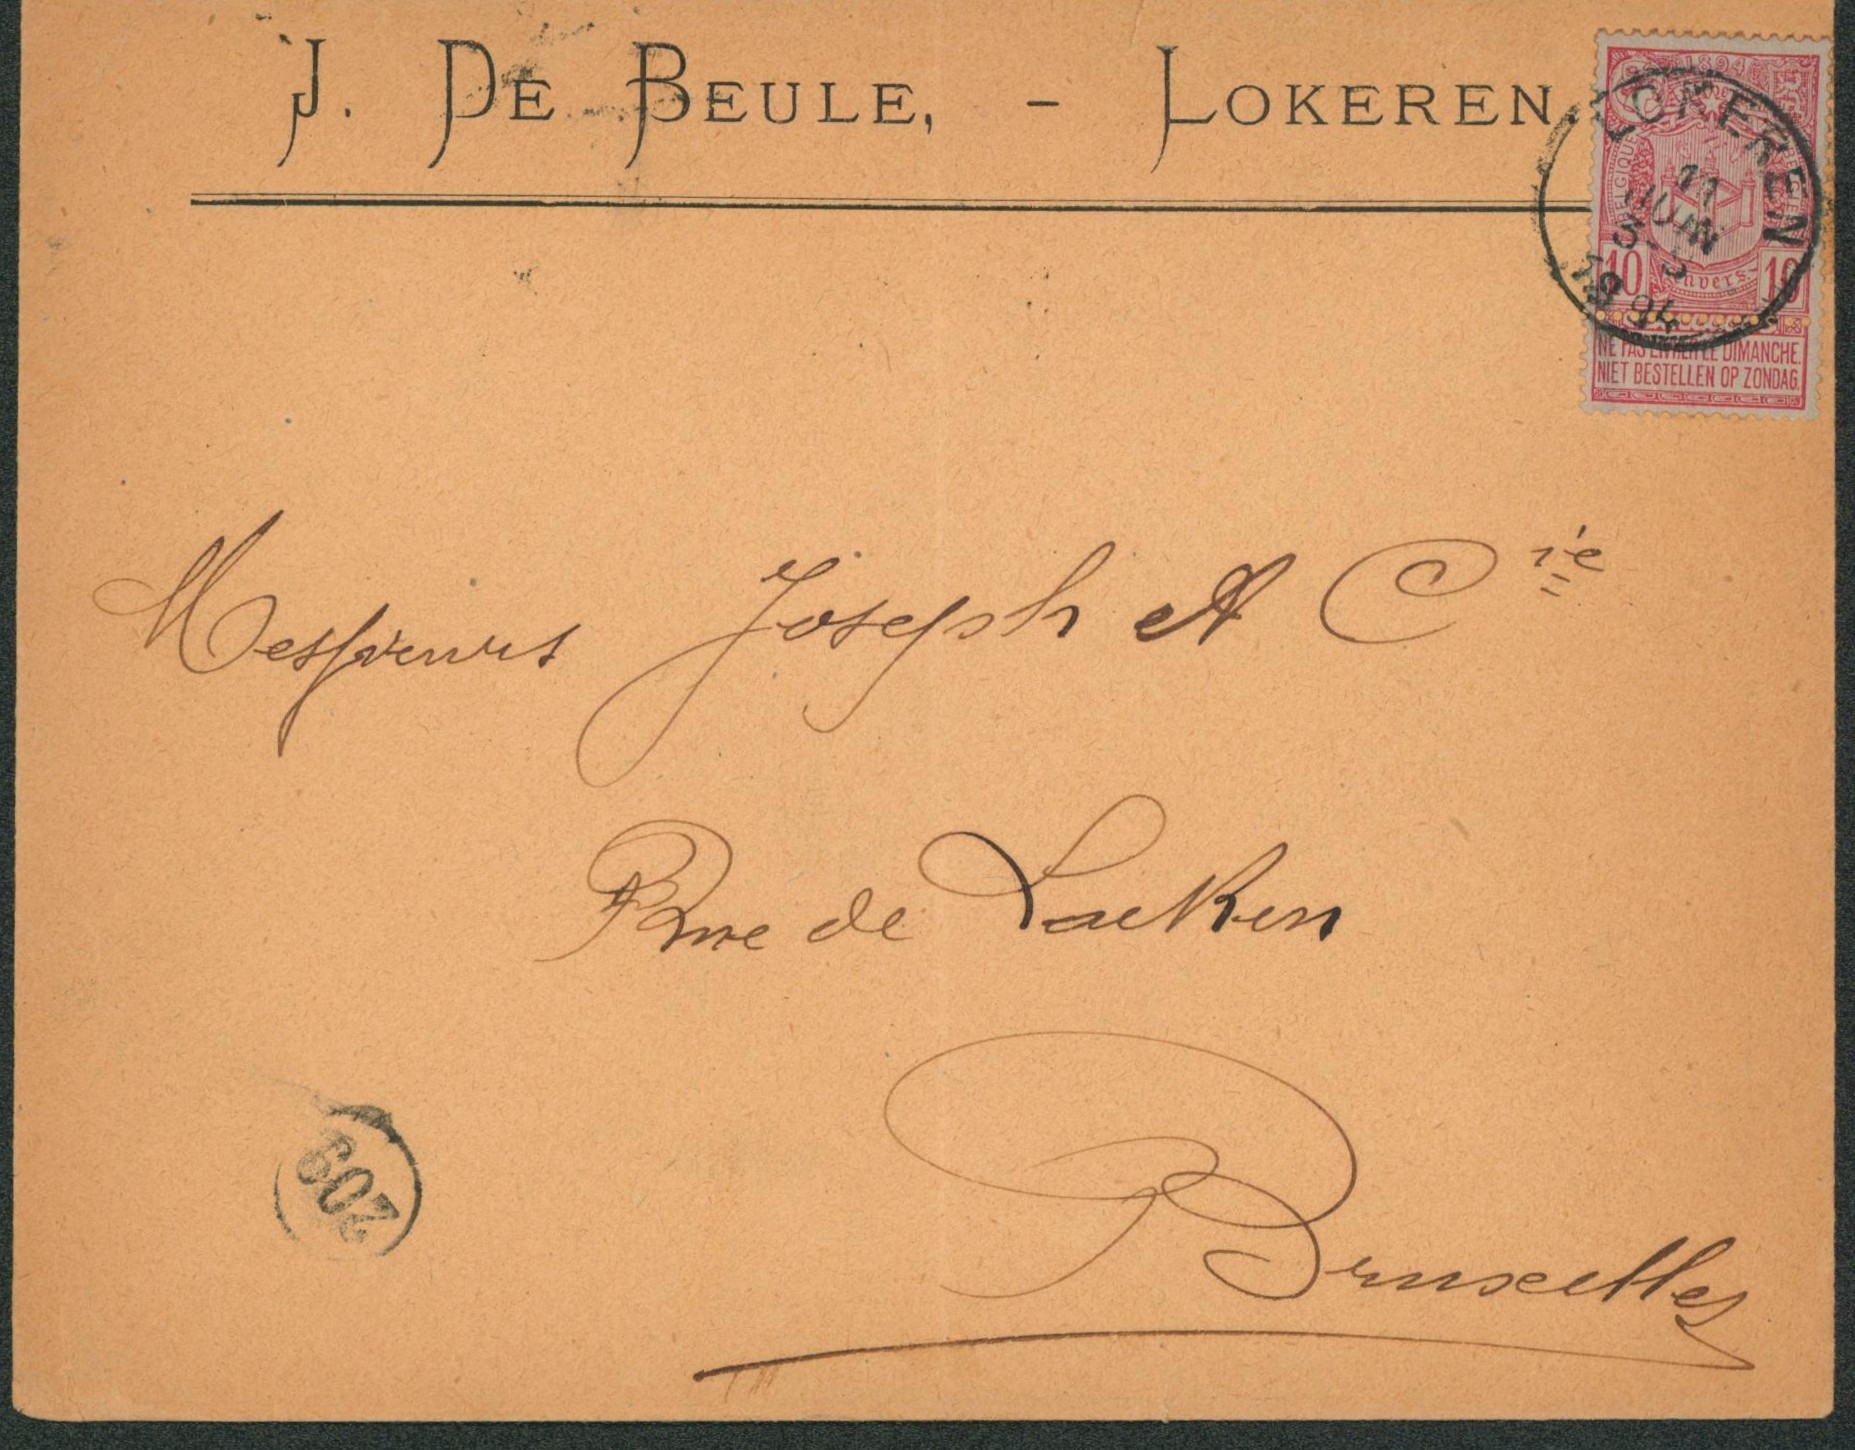 J. DE BEULE, - LOKEREN.
1894
BELGIQUE
BELGIË
Anvers.
10 10
NE PAS LIVRER LE DIMANCHE.
NIET BESTELLEN OP ZONDAG.
LOKEREN
11
JUIN
3-S
1894
Messieurs Joseph et Cie
Rue de Laeken
Bruxelles
209